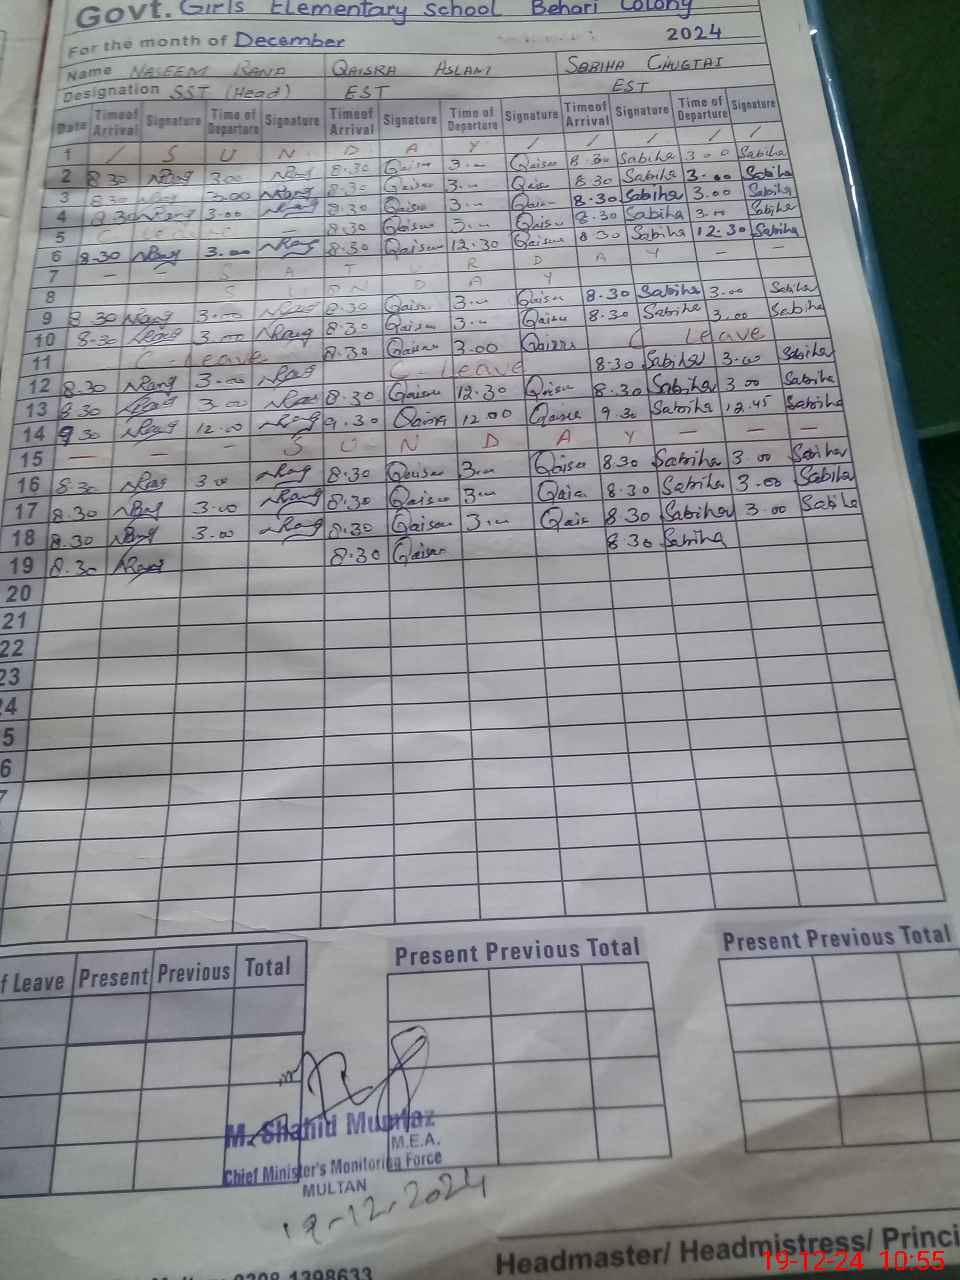 Govt. Girls Elementary School Behari Colony
For the month of December 2024
Name NASEEM RANO QAISRA ASLAM SABIHA CHUGTAI
Designation SST (Head) EST EST
Date Time of Arrival Signature Time of Departure Signature Time of Arrival Signature Time of Departure Signature Time of Arrival Signature Time of Departure Signature
1 / S U N D A Y / / / / /
2 8 30 3.00 8.30 Qaisra 3.00 Qaisra 8.30 Sabiha 3 00 Sabiha
3 8.30 3.00 8.30 Qaisra 3.00 Qaisra 8 30 Sabiha 3.00 Sabiha
4 8.30 3.00 8.30 Qaisra 3.00 Qaisra 8.30 Sabiha 3.00 Sabiha
5 C leave – 8.30 Qaisra 3.00 Qaisra 8.30 Sabiha 3.00 Sabiha
6 8.30 3.00 8.30 Qaisra 12.30 Qaisra 8 30 Sabiha 12.30 Sabiha
7 – – S A T U R D A Y – –
8 S U N D A Y
9 8 30 3.00 8.30 Qaisra 3.00 Qaisra 8.30 Sabiha 3.00 Sabiha
10 8.30 3.00 8.30 Qaisra 3.00 Qaisra 8.30 Sabiha 3.00 Sabiha
11 C-Leave 8.30 Qaisra 3.00 Qaisra C Leave
12 8.30 3.00 C-Leave 8.30 Sabiha 3.00 Sabiha
13 8.30 3.00 8.30 Qaisra 12.30 Qaisra 8.30 Sabiha 3 00 Sabiha
14 9 30 12.00 9.30 Qaisra 12 00 Qaisra 9.30 Sabiha 12.45 Sabiha
15 – – – S U N D A Y – – –
16 8.30 3.00 8.30 Qaisra 3.00 Qaisra 8.30 Sabiha 3.00 Sabiha
17 8.30 3.00 8.30 Qaisra 3.00 Qaisra 8.30 Sabiha 3.00 Sabiha
18 8.30 3.00 8.30 Qaisra 3.00 Qaisra 8.30 Sabiha 3.00 Sabiha
19 8.30 8.30 Qaisra 8.30 Sabiha
20
21
22
23
24
5
6
7
f Leave Present Previous Total
Present Previous Total
Present Previous Total
M. Shahid Mumtaz
M.E.A.
Chief Minister's Monitoring Force
MULTAN
19-12-2024
Headmaster/ Headmistress/ Princi
1398633
19-12-24 10:55